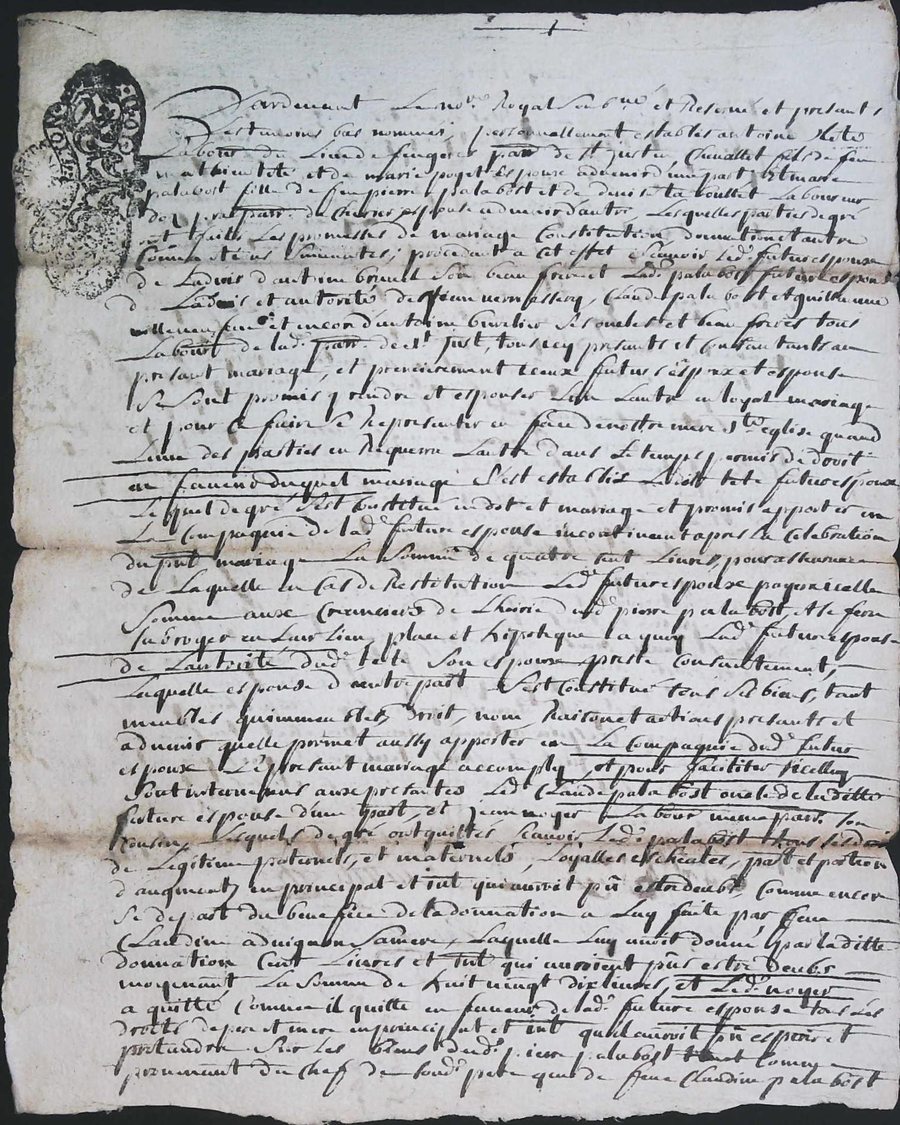 Pardevant Le no.re Royal soub.né et Reservé et presants
Les temoins bas nommés, personnellement establis antoine tete
Labour de Lieu de fougeres parr. de st justen Chevallet fils de feu
mathieu tete et de marie poyet espoux advenir d'une part Et marie
palabost fille de feu pierre palabost et de denise Laboureur
parr. de Cherier espouse advenir d'autre, Lesquelles parties de gré
ont faites Les promesses de mariage Constitution donnation et autre
Comme s'ensuivantes, procedant a cet effet scavoir Led. futur espoux
de Ladvis d'antoine son beau frere et Lad. palabost future espouse
de Ladvis et autorité de Claude palabost et guillaume
et encore d'antoine ses oncles et beau freres tous
Labour. de lad. parr. de st just, tous icy presants et Consantants au
presant mariage, et premierement iceux futurs espoux et espouse
se sont promis prendre et espouser L'un L'autre en loyal mariage
et pour ce faire se Representer en face de nostre mere ste eglise quand
L'une des parties en Requerra L'autre dans Le temps permis de droit
en faveur duquel mariage s'est establi Ledit tete futur espoux
Lequel de gré s'est Constitué en dot et mariage et promis apporter en
La Compagnie de lad. future espouse incontinant apres La Celebration
du pnt mariage La somme de quatre cent Livres, pour asseurance
de Laquelle en Cas de Restitution Led. futur espoux payera icelle
somme aux Creanciers de L'hoirie dud. pierre palabost, et se fera
subroger en Leur Lieu, place et hipoteque a quoy Lad. future espouse
de L'autorité dud. tete son espoux preste Consantement,
Laquelle espouse d'autre part s'est Constitué tous ses biens, tant
meubles qu'immeubles, droit, nom, Raison et actions presants et
advenir quelle promet aussy apporter en La Compagnie dud. futur
espoux Le presant mariage accomply, et pour faciliter Icelluy
sont intervenus aux presantes Led. Claude palabost oncle de la ditte
future espouse d'une part, et Jean noyer Labour. meme parr. son
Cousin, Lesquels de gré ont quittés scavoir Led. palabost tous ses droits
de Legitime paternels, et maternels, Loyalles escheutes, part et portion
d'augment, en principal et int. qui auroit pû estre deubs, Comme encore
se depart du benefice de la donnation a Luy faite par feue
Claudine advignon sa mere, Laquelle Luy avoit donné par laditte
donnation Cent Livres et int. qui auroient pûs estre deubs
moyenant La somme de huit vingt dix livres, et Led. noyer
a quitté Comme il quitte en faveur de lad. future espouse tous ses
droits de pere et mere en principal et int. qu'il auroit pû esperer et
pretandre sur Les biens dud. pierre palabost tant Comme
provenant du Chef de son d. pere que de feue Claudine palabost